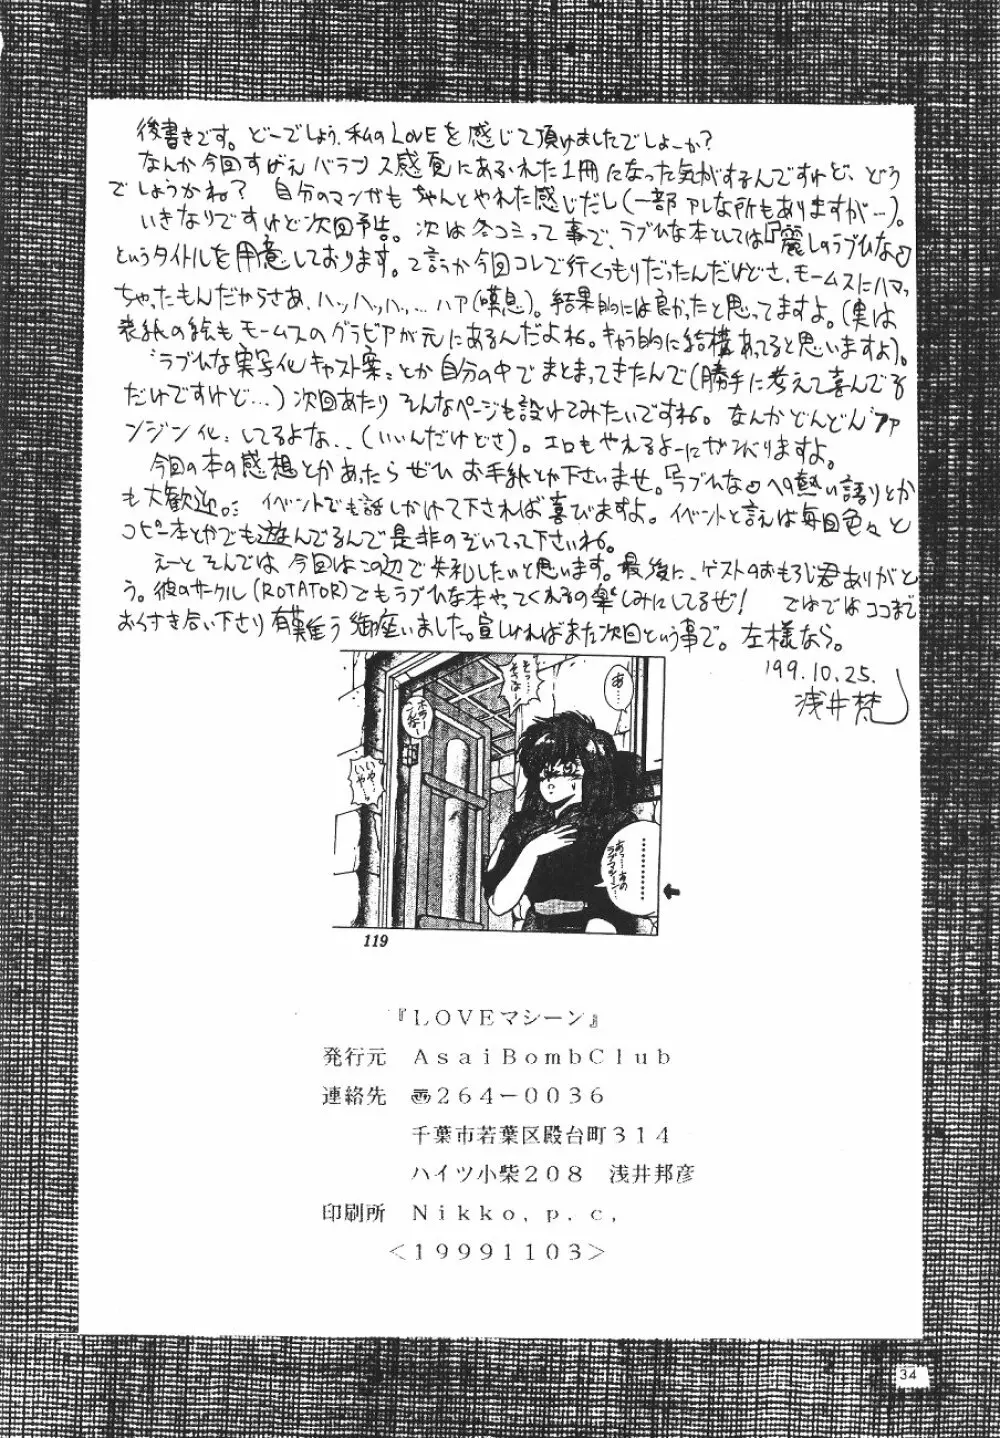 後書きです。どーでしょう、私のLOVEを感じて頂けましたでしょーか？
なんか今回すげえバランス感覚にあふれた1冊になった気がするんですけど、どう
でしょうかね？　自分のマンガもちゃんとやれた感じだし(一部アレな所もありますが…)。
いきなりですけど次回予告。次は冬コミって事で、ラブひな本としては『麗しのラブひな』
というタイトルを用意しております。て言うか今回コレで行くつもりだったんだけどさ、モームスにハマっ
ちゃったもんだからさあ、ハッハッハッ…ハア(嘆息)。結果的には良かったと思ってますよ。(実は
表紙の絵もモームスのグラビアが元にあるんだよね。キャラ的に結構あってると思いますよ)。
"ラブひな実写化キャスト案"とか自分の中でまとまってきたんで(勝手に考えて喜んでる
だけですけど…)次回あたりそんなページも設けてみたいですね。なんかどんどん"ファ
ンジン化"してるよな、、(いいんだけどさ)。エロもやえるよーにガンバりますよ。
今回の本の感想とかあったらぜひお手紙とか下さいませ。『ラブひな』への熱い語りとか
も大歓迎。イベントでも話しかけて下されば喜びますよ。イベントと言えば毎回色々と
コピー本とかでも遊んでるんで是非のぞいてって下さいね。
えーとそんでは今回はこの辺で失礼したいと思います。最後に、ゲストのおもろじ君ありがと
う。彼のサークル(ROTATOR)でもラブひな本やってくれるの楽しみにしてるぜ！　ではではココまで
おくすき合い下さり有難う御座いました。宜しければまた次回という事で。左様なら。
'99.10.25.
浅井梵
あ…。
そっ…そさなー
ホラーンなー
いや…いや…っ
…………
あっ…あのラブマシーン…
119
『LOVEマシーン』
発行元　AsaiBombClub
連絡先　〠264－0036
千葉市若葉区殿台町314
ハイツ小柴208　浅井邦彦
印刷所　Nikko，p．c，
＜19991103＞
34